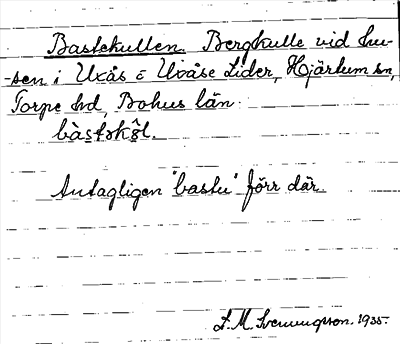 Bastekullen. Bergkulle vid hu-
-sen i Uxås o Uxåse Lider, Hjärtum sn,
Torpe hd, Bohus län.
Antagligen "bastu" förr där.
S. M. Svenungsson. 1935.